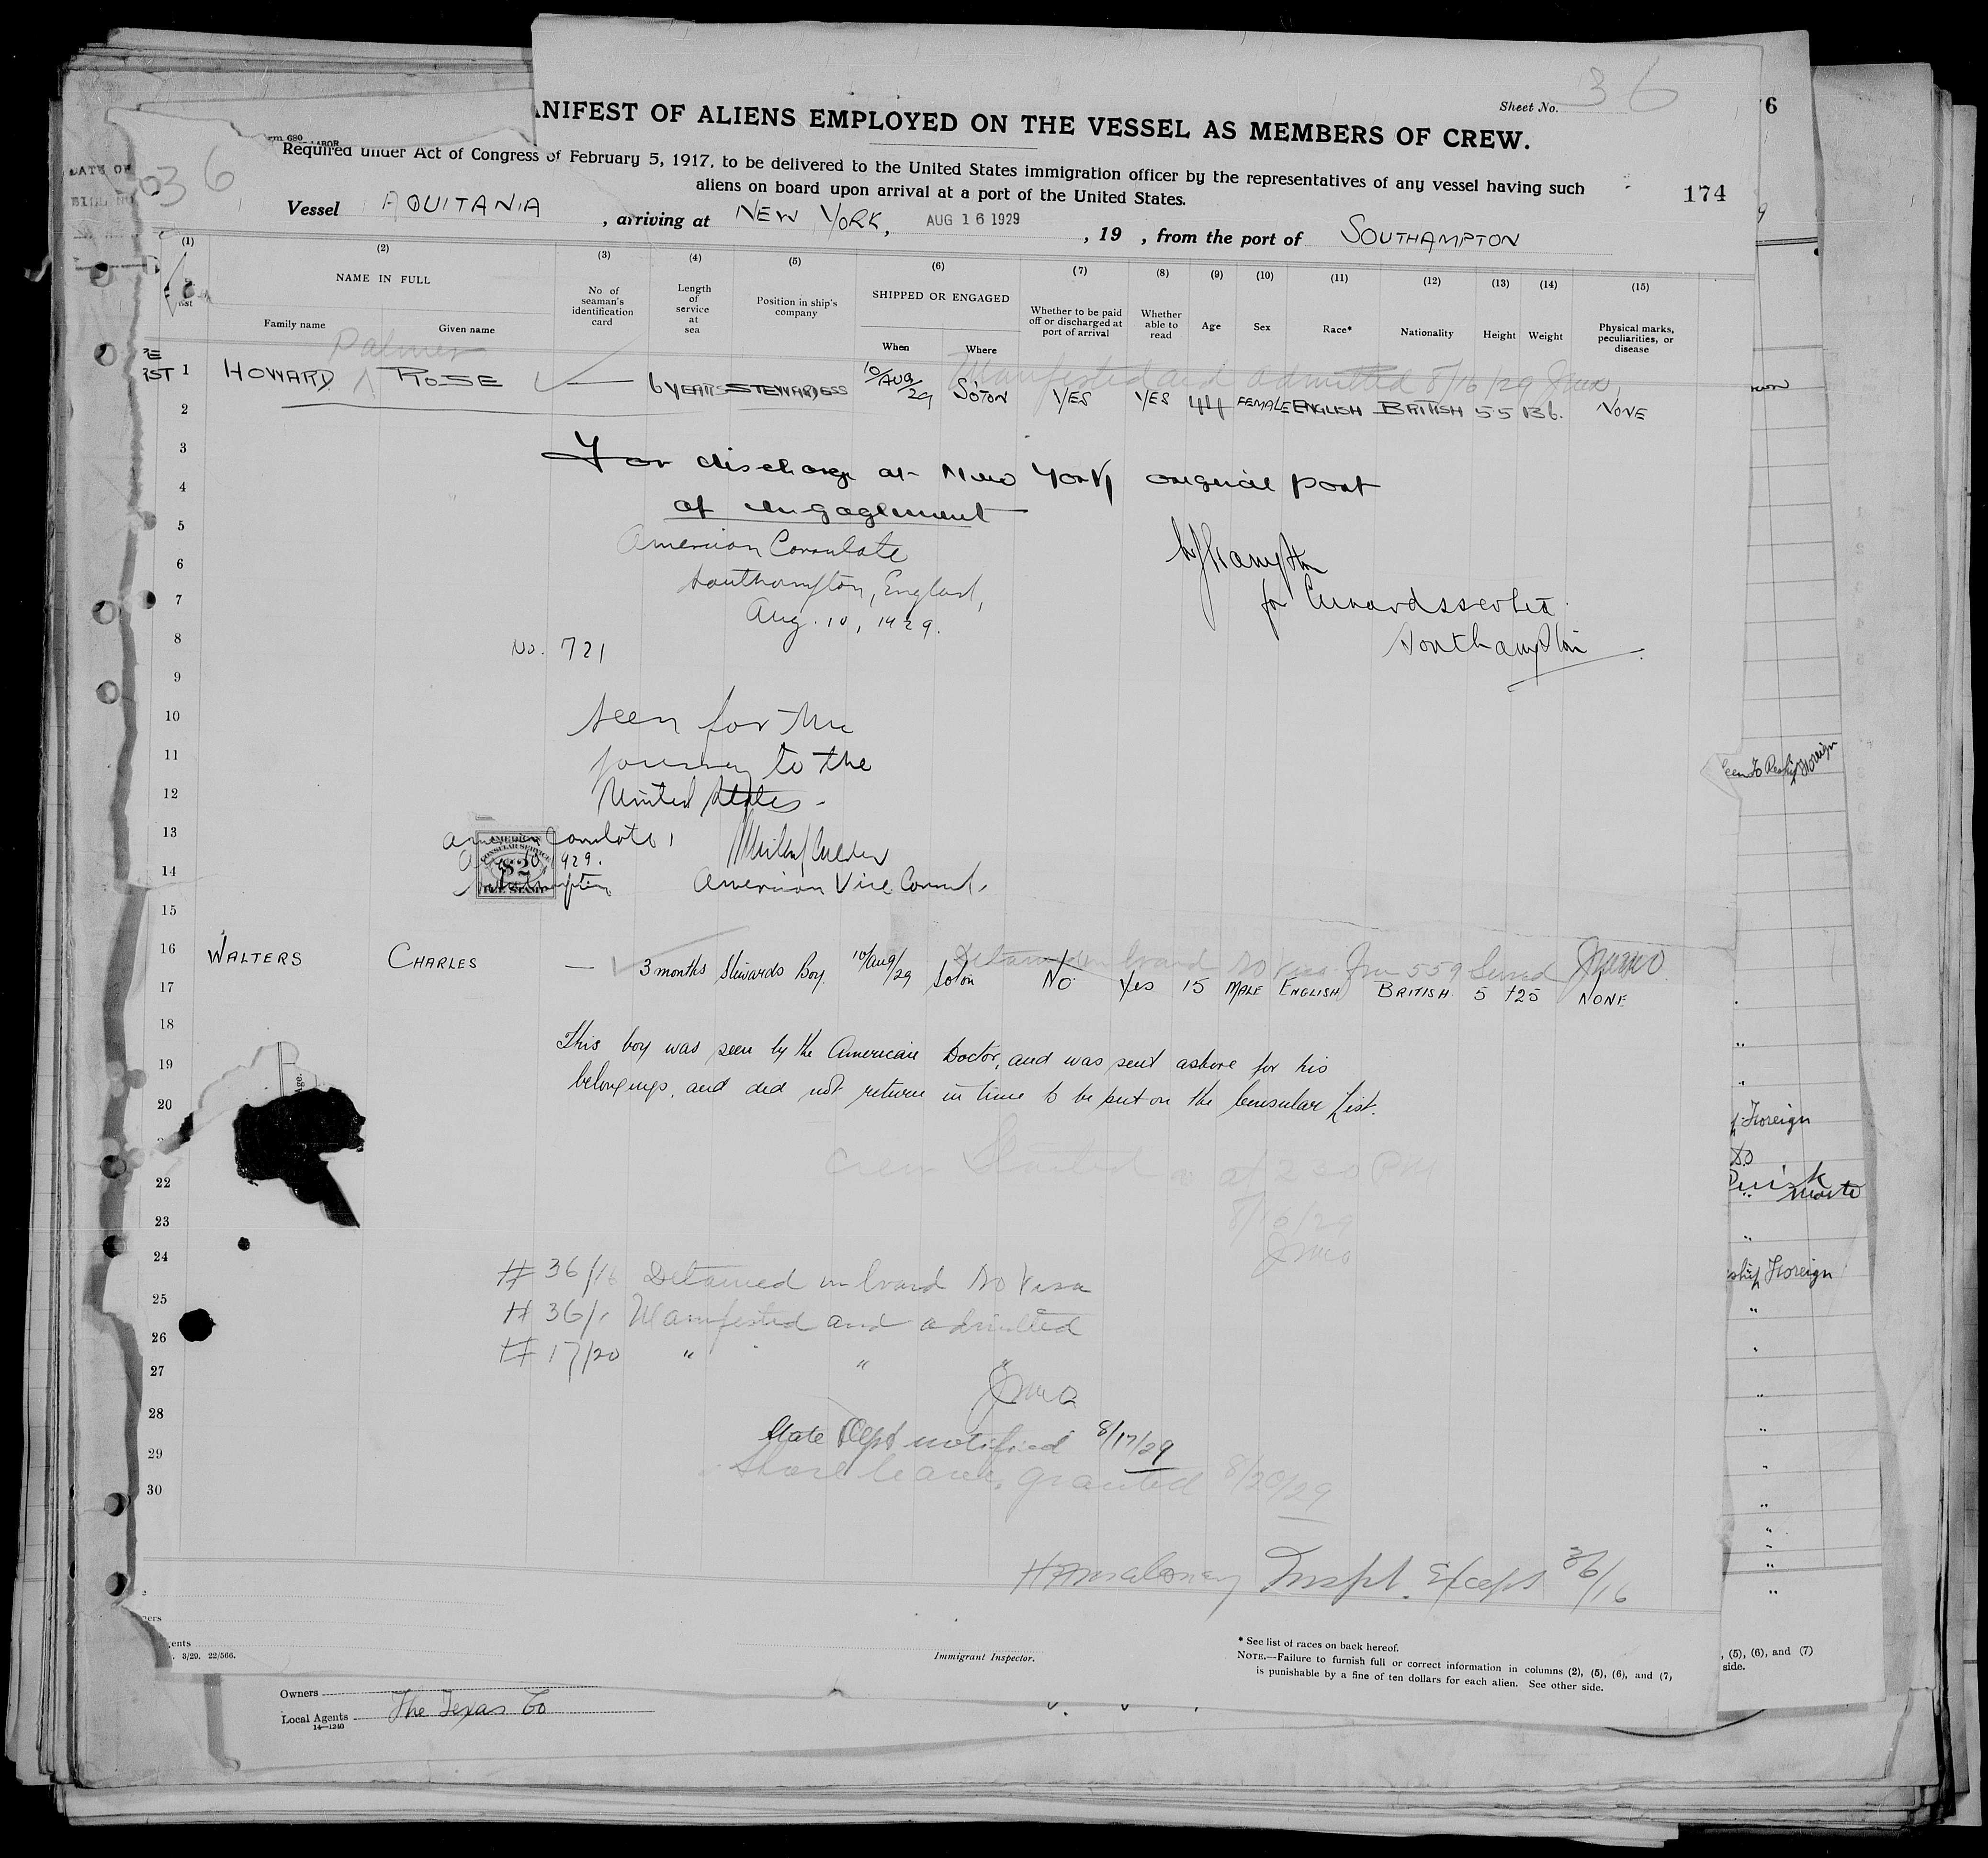 Sheet No. 36
ANIFEST OF ALIENS EMPLOYED ON THE VESSEL AS MEMBERS OF CREW.
rm 680
Required under Act of Congress of February 5, 1917, to be delivered to the United States immigration officer by the representatives of any vessel having such
aliens on board upon arrival at a port of the United States.
174
36
Vessel AQUITANIA , arriving at NEW YORK, AUG 16 1929 , 19 , from the port of SOUTHAMPTON
(1) (2) (3) (4) (5) (6) (7) (8) (9) (10) (11) (12) (13) (14) (15)
NAME IN FULL
Family name Given name
No. of seaman's identification card
Length of service at sea
Position in ship's company
SHIPPED OR ENGAGED
When Where
Whether to be paid off or discharged at port of arrival
Whether able to read
Age Sex Race* Nationality Height Weight
Physical marks, peculiarities, or disease
Palmer
Manifested and admitted 8/16/29
1 HOWARD ROSE — 6 YEARS STEWARDESS 10/AUG/29 S'OTON YES YES 44 FEMALE ENGLISH BRITISH 5 5 136. NONE
2
3
For discharge at New York original port
4
of engagement
5
American Consulate
6
Southampton, England,
7
Aug. 10, 1929.
for Cunard SS Co Ltd.
Southampton
8
No. 721
9
10
Seen for the
11
journey to the
12
United States -
13
American Consulate,
AMERICAN CONSULAR SERVICE
$2
FEE STAMP
1929.
14
American Vice Consul.
15
16 WALTERS CHARLES — 3 months Stewards Boy 10/Aug/29 Soton No Yes 15 MALE ENGLISH BRITISH 5 125 NONE
Detained on board No Visa 559 Served
17
18
This boy was seen by the American Doctor, and was sent ashore for his
19
belongings, and did not return in time to be put on the Consular List.
20
22
Crew 2 30 PM
23
8/16/29
24
# 36/16 Detained on board No Visa
25
# 36/1 Manifested and admitted
26
# 17/20 " " "
27
28
State Dept notified 8/17/29
29
Shore leave granted 8/20/29
30
Inspt. Except 36/16
3/29. 22/566.
Immigrant Inspector.
* See list of races on back hereof.
NOTE.—Failure to furnish full or correct information in columns (2), (5), (6), and (7,
is punishable by a fine of ten dollars for each alien. See other side.
Owners
Local Agents The Texas Co
14—1240
, (5), (6), and (7)
side.
Foreign
Foreign